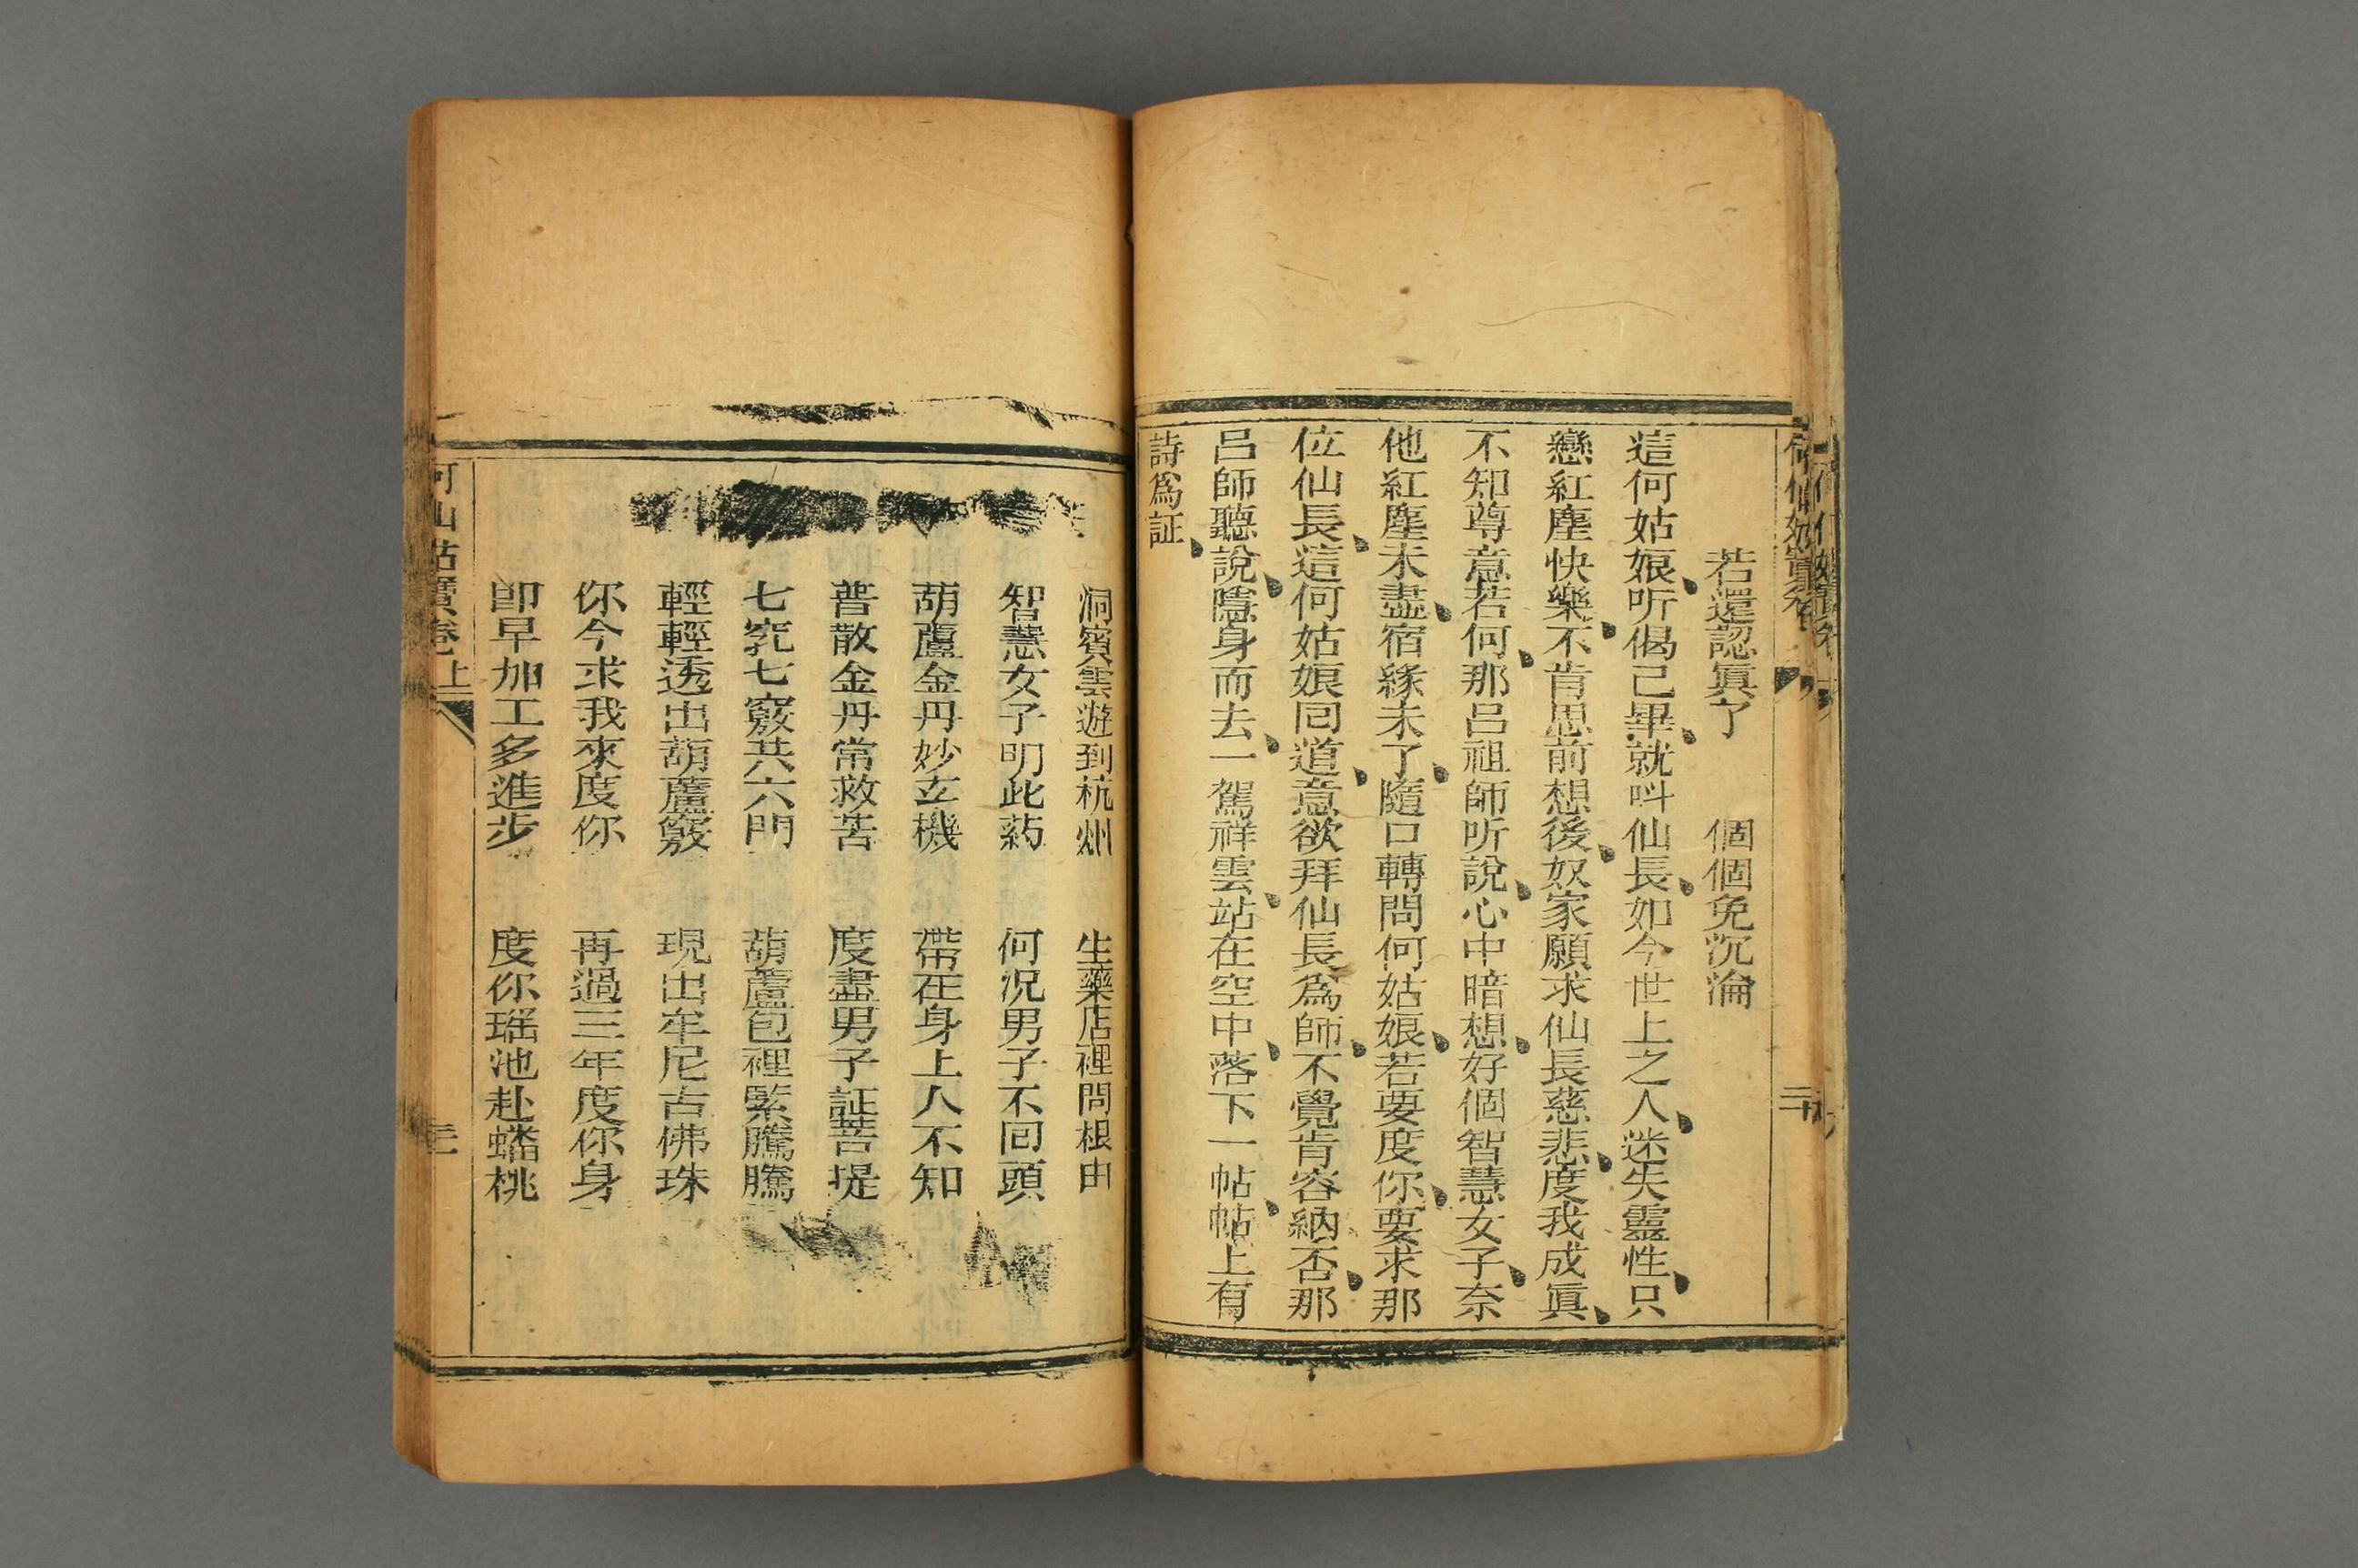 何仙姑寶卷
若還認眞了　個個免沉淪
這何姑娘听偈己畢就呌仙長如今世上之人迷失靈性只
戀紅塵快樂不肯思前想後奴家願求仙長慈悲度我成眞
不知尊意若何那呂祖師听說心中暗想好個智慧女子奈
他紅塵未盡宿緣未了隨口轉問何姑娘若要度你要求那
位仙長這何姑娘囘道意欲拜仙長爲師不覺肯容納否那
呂師聽說隱身而去一駕祥雲站在空中落下一帖帖上有
詩爲証
洞賓雲遊到杭州　生藥店裡問根由
智慧女子明此葯　何況男子不囘頭
葫蘆金丹妙玄機　帶在身上人不知
普散金丹常救苦　度盡男子証菩提
七宂七竅共六門　葫蘆包裡緊騰騰
輕輕透出葫蘆竅　現出牟尼古佛珠
你今求我來度你　再過三年度你身
卽早加工多進步　度你瑶池赴蟠桃
何仙姑寶卷上